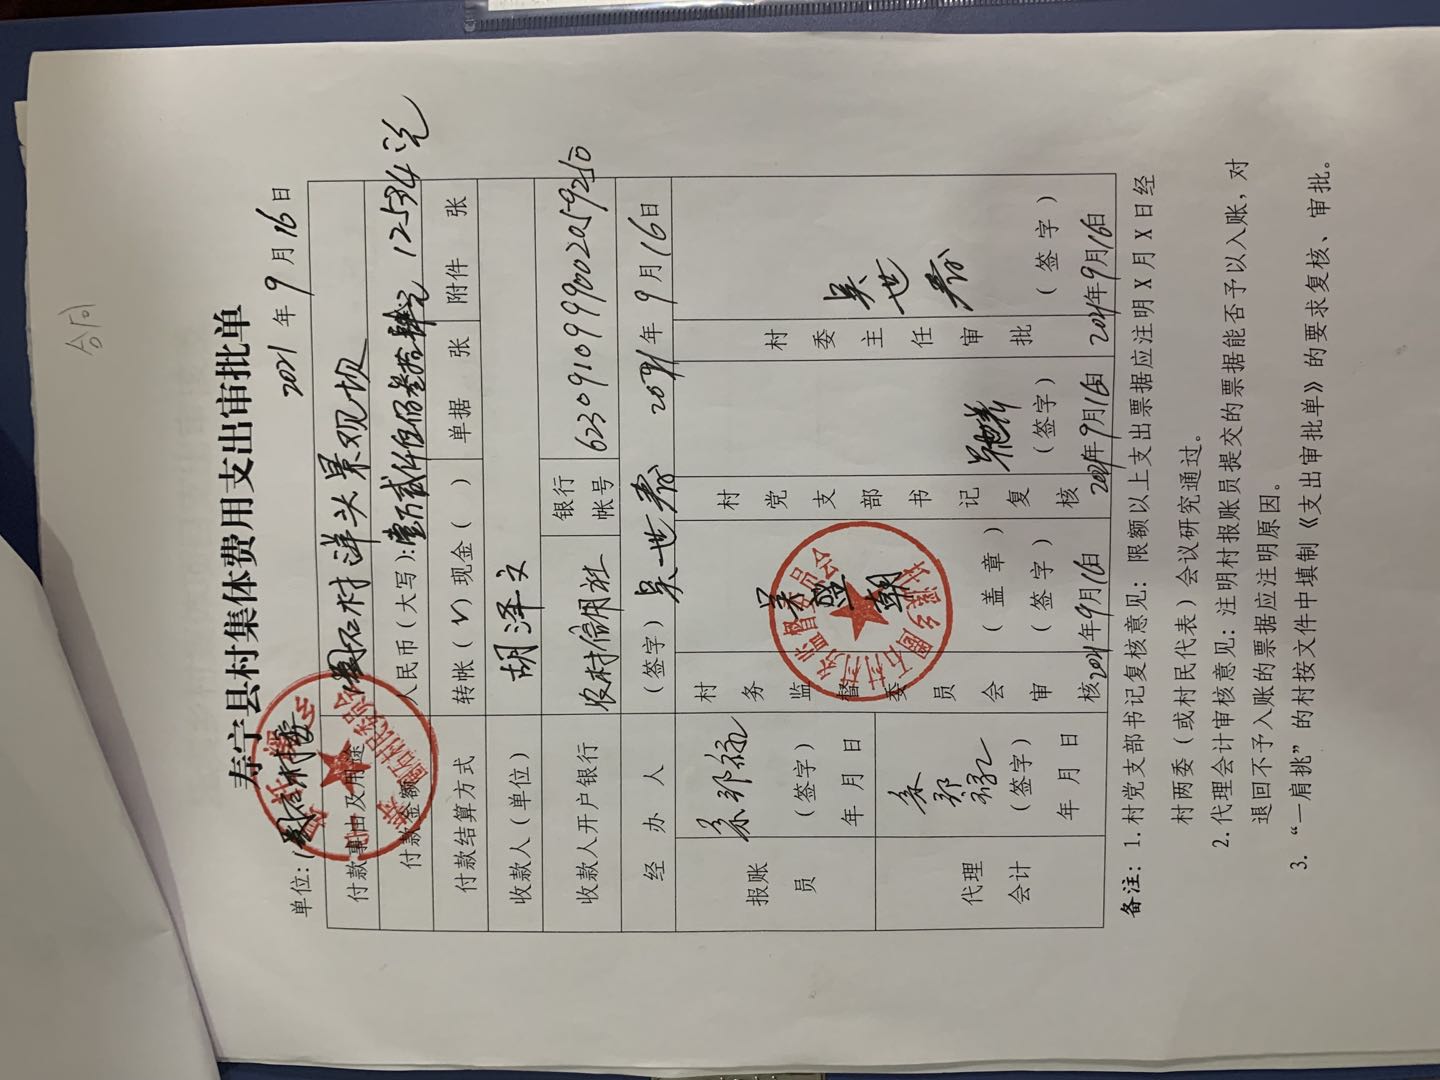 合同
寿宁县村集体费用支出审批单
单位：(盖章) 2021 年 9 月 16 日
付款事由及用途 圈石村洋头景观坝
付款金额 人民币（大写）：壹万贰仟伍佰叁拾肆元 12534元
付款结算方式 转帐（√）现金（ ） 单据 张 附件 张
收款人（单位） 胡泽文
收款人开户银行 农村信用社 银行帐号
经办人 （签字）吴世 2021年 9 月 16 日
报账员 （签字） 年 月 日
村务监督委员会审核 （盖章）（签字） 2021年9月16日
村党支部书记复核 （签字） 2021年9月16日
村委主任审批 吴世 （签字） 2021年9月16日
代理会计 （签字） 年 月 日
备注：1.村党支部书记复核意见：限额以上支出票据应注明X月X日经
村两委（或村民代表）会议研究通过。
2.代理会计审核意见：注明村报账员提交的票据能否予以入账，对
退回不予入账的票据应注明原因。
3.“一肩挑”的村按文件中填制《支出审批单》的要求复核、审批。